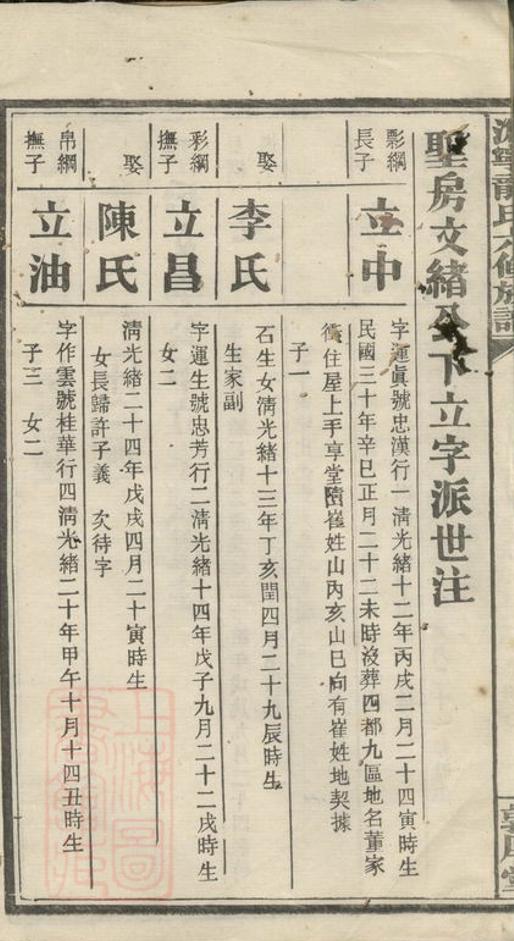 氏六修族譜
聖房文緒公下立字派世注
彰綱
長子
立中
字運眞號忠漢行一淸光緒十二年丙戌二月二十四寅時生
民國三十年辛巳正月二十二未時沒葬四都九區地名董家
衝住屋上手享堂隤崔姓山內亥山巳向有崔姓地契據
子一
娶
李氏
石生女淸光緒十三年丁亥閏四月二十九辰時生
生家副
彩綱
撫子
立昌
字運生號忠芳行二淸光緒十四年戊子九月二十二戌時生
女二
娶
陳氏
淸光緒二十四年戊戌四月二十寅時生
女長歸許子義 次待字
帛綱
撫子
立油
字作雲號桂華行四淸光緒二十年甲午十月十四丑時生
子三 女二
上海圖